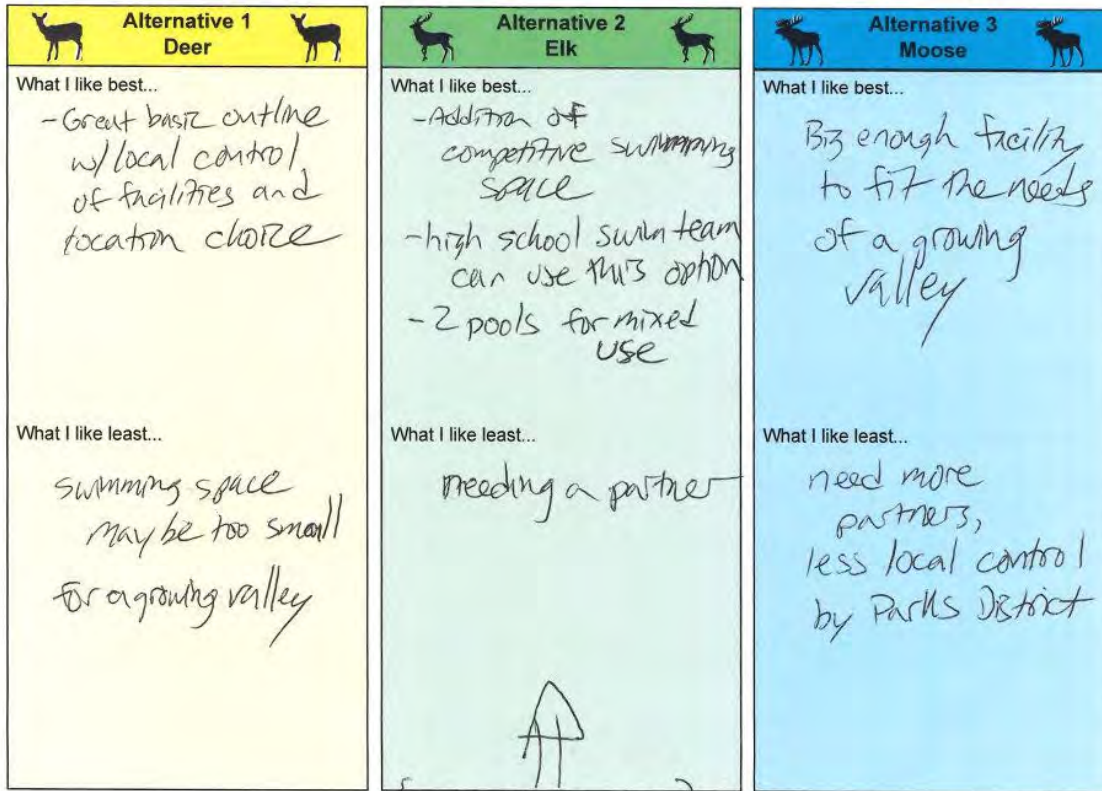 Alternative 1
Deer
What I like best...
-Great basic outline
w/ local control
of facilities and
location choice
What I like least...
swimming space
may be too small
for a growing valley
Alternative 2
Elk
What I like best...
-Addition of
competitive swimming
space
-high school swim team
can use this option
-2 pools for mixed
use
What I like least...
needing a partner
Alternative 3
Moose
What I like best...
Big enough facility
to fit the needs
of a growing
valley
What I like least...
need more
partners,
less local control
by Parks District